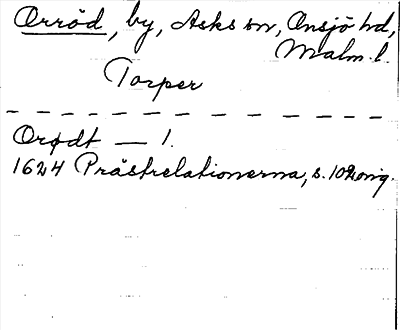 Orröd, by, Asks sn, Onsjö hd,
Malm. l.
Torper
Orødt — 1.
1624 Prästrelationerna, s. 102 orig.